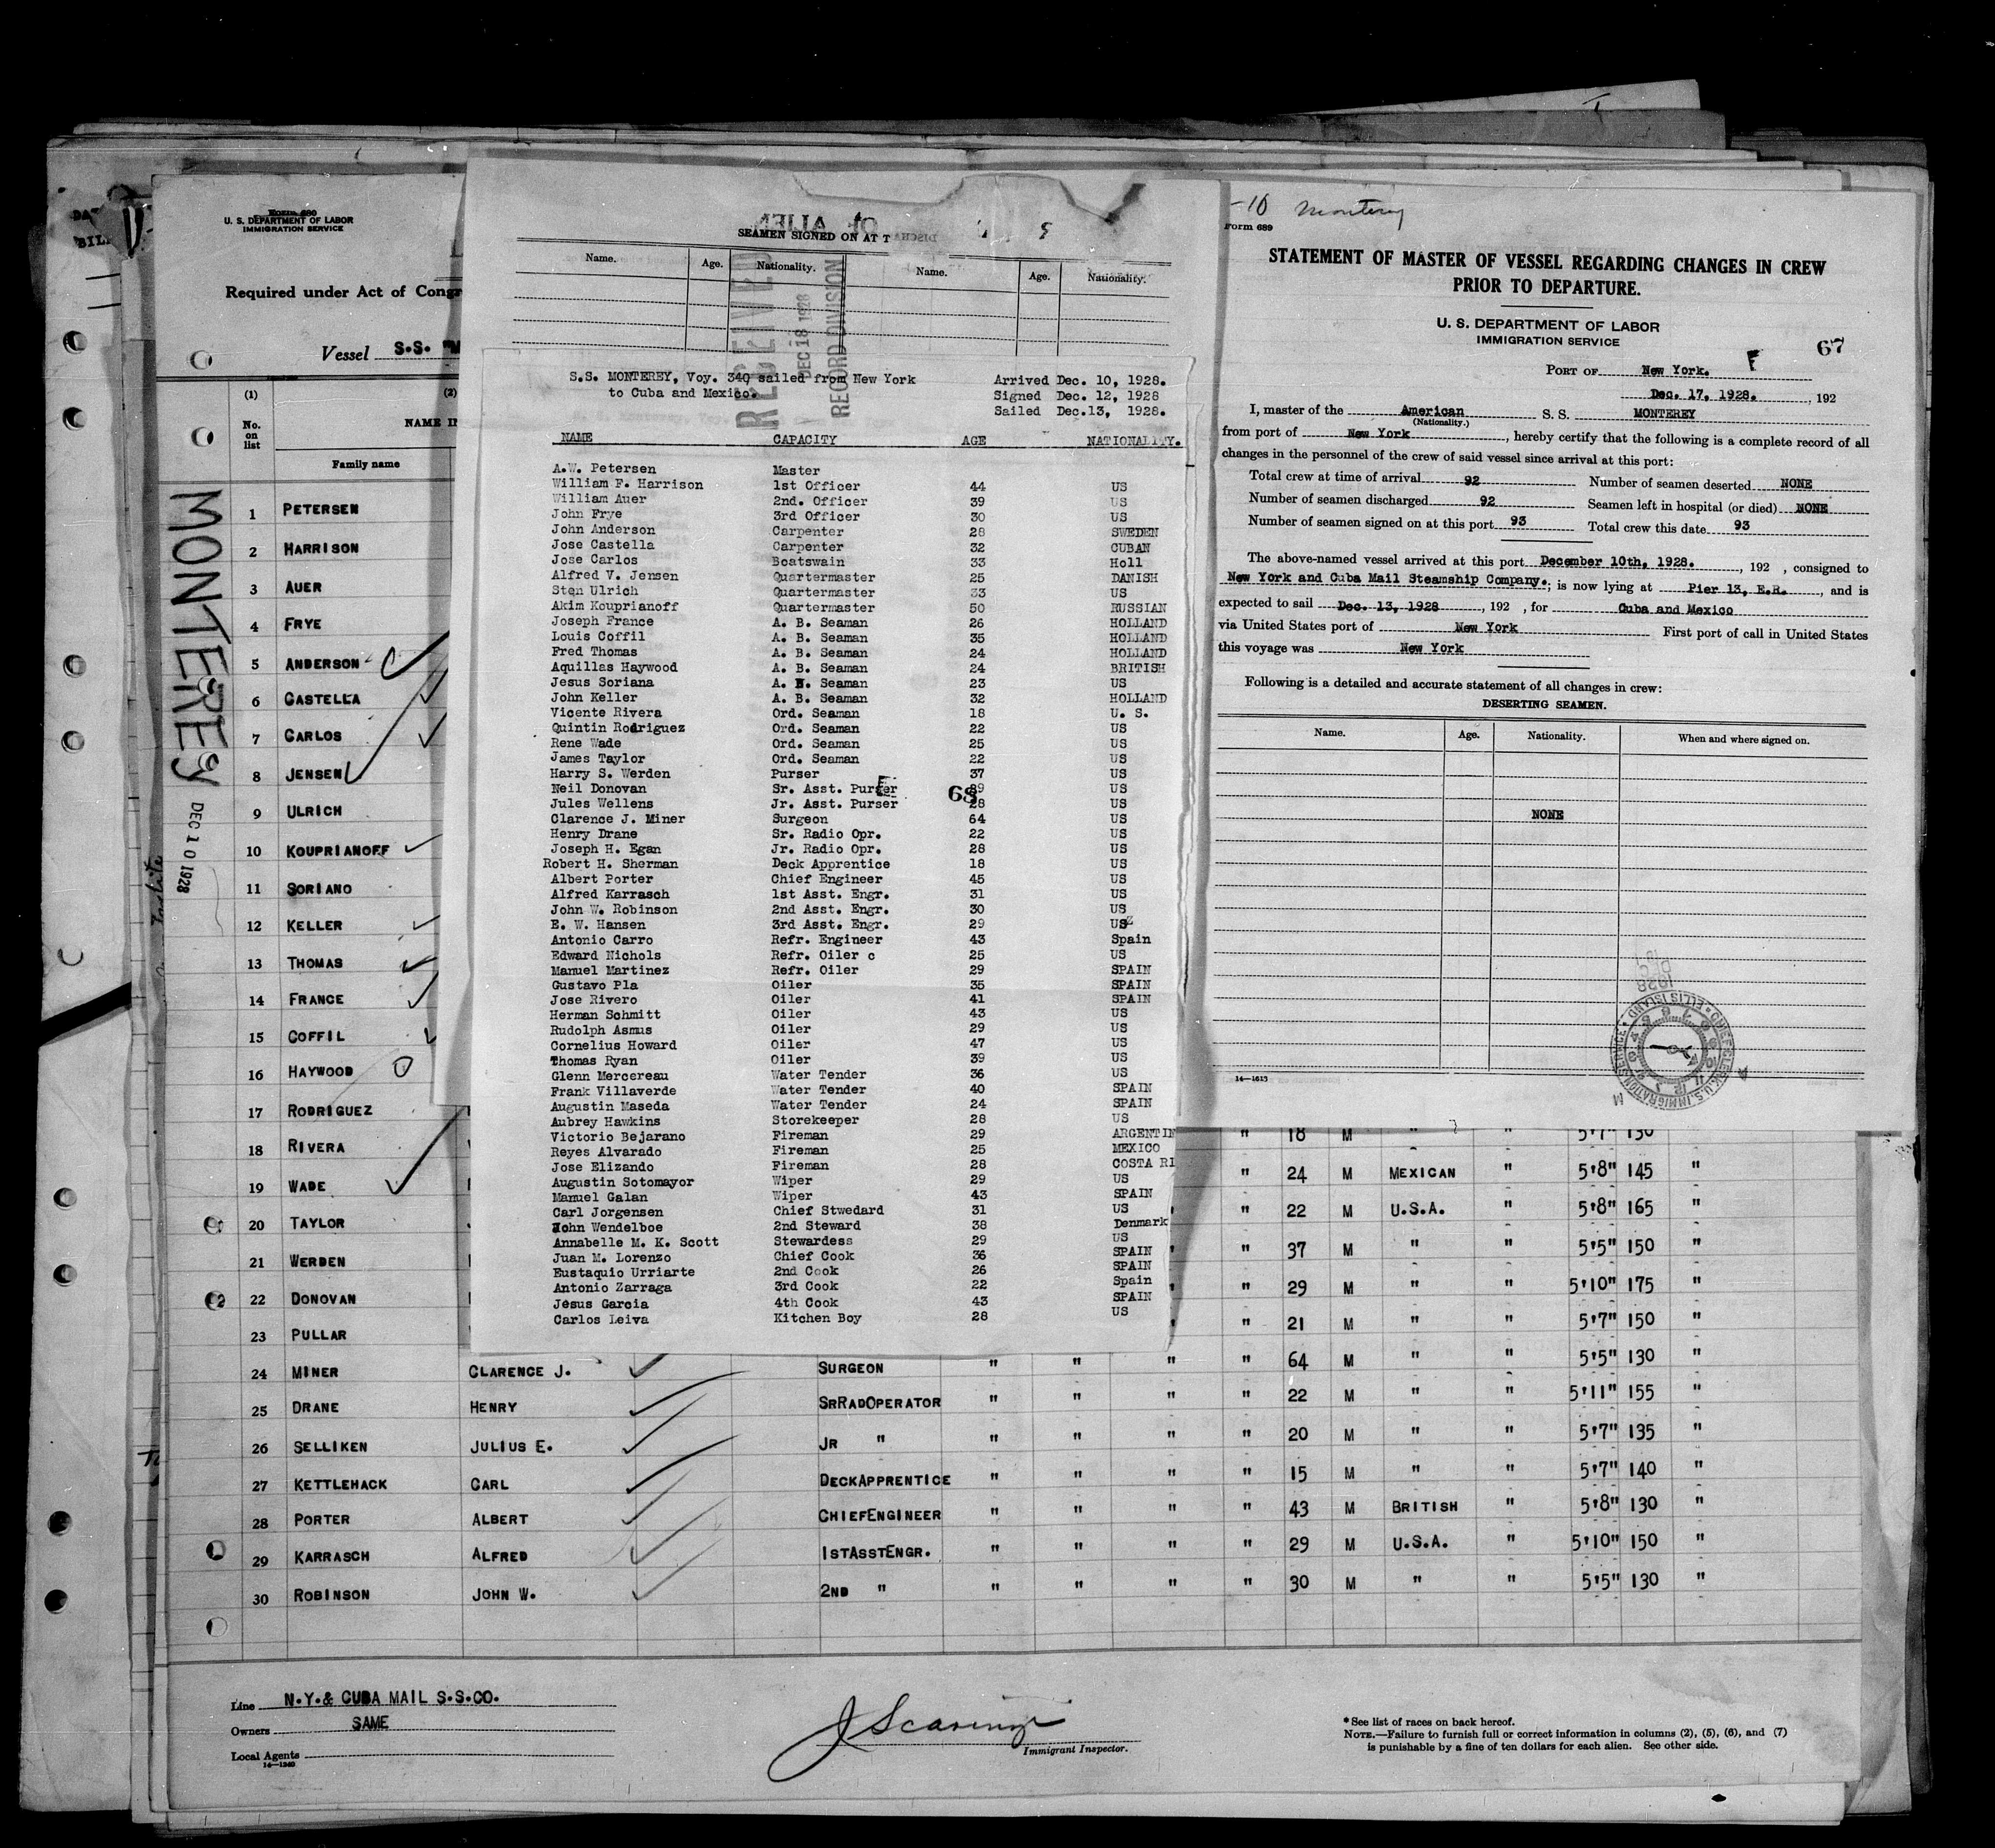 U. S. DEPARTMENT OF LABOR
IMMIGRATION SERVICE
Required under Act of Congr
Vessel S.S. "M
(1)
(2)
No. on list
NAME IN
Family name
MONTEREY
DEC 10 1928
1 PETERSEN
2 HARRISON
3 AUER
4 FRYE
5 ANDERSON
6 CASTELLA
7 CARLOS
8 JENSEN
9 ULRICH
10 KOUPRIANOFF
11 SORIANO
12 KELLER
13 THOMAS
14 FRANCE
15 COFFIL
16 HAYWOOD
17 RODRIGUEZ
18 RIVERA
19 WADE
20 TAYLOR
21 WERDEN
22 DONOVAN
23 PULLAR
SEAMEN SIGNED ON AT T
Name. Age. Nationality. Name. Age. Nationality.
RECEIVED
DEC 18 1928
RECORD DIVISION
S.S. MONTEREY, Voy. 340 sailed from New York Arrived Dec. 10, 1928.
to Cuba and Mexico. Signed Dec. 12, 1928
Sailed Dec.13, 1928.
NAME CAPACITY AGE NATIONALITY.
A.W. Petersen Master
William F. Harrison 1st Officer 44 US
William Auer 2nd. Officer 39 US
John Frye 3rd Officer 30 US
John Anderson Carpenter 28 SWEDEN
Jose Castella Carpenter 32 CUBAN
Jose Carlos Boatswain 33 Holl
Alfred V. Jensen Quartermaster 25 DANISH
Sten Ulrich Quartermaster 33 US
Akim Kouprianoff Quartermaster 50 RUSSIAN
Joseph France A. B. Seaman 26 HOLLAND
Louis Coffil A. B. Seaman 35 HOLLAND
Fred Thomas A. B. Seaman 24 HOLLAND
Aquillas Haywood A. B. Seaman 24 BRITISH
Jesus Soriana A. B. Seaman 23 US
John Keller A. B. Seaman 32 HOLLAND
Vicente Rivera Ord. Seaman 18 U. S.
Quintin Rodriguez Ord. Seaman 22 US
Rene Wade Ord. Seaman 25 US
James Taylor Ord. Seaman 22 US
Harry S. Werden Purser 37 US
Neil Donovan Sr. Asst. Purser 29 US
Jules Wellens Jr. Asst. Purser 28 US
68
Clarence J. Miner Surgeon 64 US
Henry Drane Sr. Radio Opr. 22 US
Joseph H. Egan Jr. Radio Opr. 28 US
Robert H. Sherman Deck Apprentice 18 US
Albert Porter Chief Engineer 45 US
Alfred Karrasch 1st Asst. Engr. 31 US
John W. Robinson 2nd Asst. Engr. 30 US
E. W. Hansen 3rd Asst. Engr. 29 US
Antonio Carro Refr. Engineer 43 Spain
Edward Nichols Refr. Oiler c 25 US
Manuel Martinez Refr. Oiler 29 SPAIN
Gustavo Pla Oiler 35 SPAIN
Jose Rivero Oiler 41 SPAIN
Herman Schmitt Oiler 43 US
Rudolph Asmus Oiler 29 US
Cornelius Howard Oiler 47 US
Thomas Ryan Oiler 39 US
Glenn Mercereau Water Tender 36 US
Frank Villaverde Water Tender 40 SPAIN
Augustin Maseda Water Tender 24 SPAIN
Aubrey Hawkins Storekeeper 28 US
Victorio Bejarano Fireman 29 ARGENTIN
Reyes Alvarado Fireman 25 MEXICO
Jose Elizando Fireman 28 COSTA RI
Augustin Sotomayor Wiper 29 US
Manuel Galan Wiper 43 SPAIN
Carl Jorgensen Chief Stwedard 31 US
John Wendelboe 2nd Steward 38 Denmark
Annabelle M. K. Scott Stewardess 29 US
Juan M. Lorenzo Chief Cook 36 SPAIN
Eustaquio Urriarte 2nd Cook 26 SPAIN
Antonio Zarraga 3rd Cook 22 Spain
Jesus Garcia 4th Cook 43 SPAIN
Carlos Leiva Kitchen Boy 28 US
-10 Monterey
Form 689
STATEMENT OF MASTER OF VESSEL REGARDING CHANGES IN CREW
PRIOR TO DEPARTURE.
U. S. DEPARTMENT OF LABOR
IMMIGRATION SERVICE
67
PORT OF New York. F
Dec. 17, 1928. , 192
I, master of the American S. S. MONTEREY
(Nationality.)
from port of New York , hereby certify that the following is a complete record of all
changes in the personnel of the crew of said vessel since arrival at this port:
Total crew at time of arrival 92 Number of seamen deserted NONE
Number of seamen discharged 92 Seamen left in hospital (or died) NONE
Number of seamen signed on at this port 93 Total crew this date 93
The above-named vessel arrived at this port December 10th, 1928. , 192 , consigned to
New York and Cuba Mail Steamship Company. ; is now lying at Pier 13, E.R. , and is
expected to sail Dec. 13, 1928 , 192 , for Cuba and Mexico
via United States port of New York First port of call in United States
this voyage was New York
Following is a detailed and accurate statement of all changes in crew:
DESERTING SEAMEN.
Name. Age. Nationality. When and where signed on.
NONE
14-1613
" 18 M " " 5'7" 130
" 24 M MEXICAN " 5'8" 145 "
" 22 M U.S.A. " 5'8" 165 "
" 37 M " " 5'5" 150 "
" 29 M " " 5'10" 175 "
" 21 M " " 5'7" 150 "
24 MINER CLARENCE J. SURGEON " " " " 64 M " " 5'5" 130 "
25 DRANE HENRY SRRADOPERATOR " " " " 22 M " " 5'11" 155 "
26 SELLIKEN JULIUS E. JR " " " " " 20 M " " 5'7" 135 "
27 KETTLEHACK CARL DECKAPPRENTICE " " " " 15 M " " 5'7" 140 "
28 PORTER ALBERT CHIEFENGINEER " " " " 43 M BRITISH " 5'8" 130 "
29 KARRASCH ALFRED 1STASSTENGR. " " " " 29 M U.S.A. " 5'10" 150 "
30 ROBINSON JOHN W. 2ND " " " " " 30 M " " 5'5" 130 "
Line N.Y.& CUBA MAIL S.S.CO.
Owners SAME
Local Agents
14-1240
Immigrant Inspector.
*See list of races on back hereof.
NOTE.—Failure to furnish full or correct information in columns (2), (5), (6), and (7)
is punishable by a fine of ten dollars for each alien. See other side.